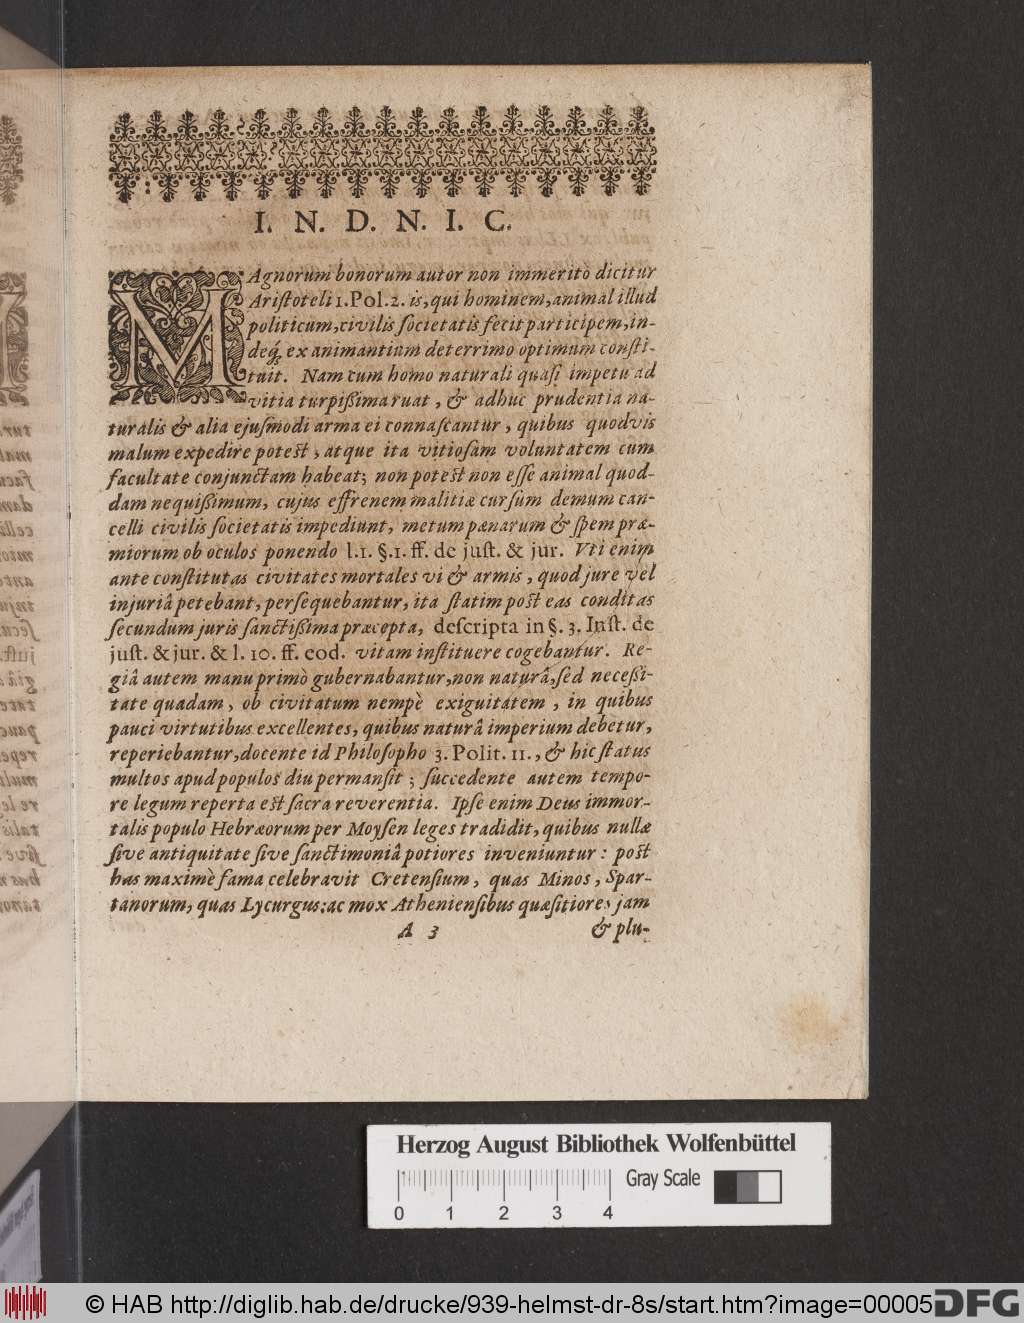 I. N. D. N. I. C.
MAgnorum bonorum autor non immeritò dicitur
Aristoteli 1. Pol. 2. is, qui hominem, animal illud
politicum, civilis societatis fecit participem, in-
deq́; ex animantium deterrimo optimum consti-
tuit. Nam cum homo naturali quasi impetu ad
vitia turpißima ruat, & adhuc prudentia na-
turalis & alia ejusmodi arma ei connascantur, quibus quodvis
malum expedire potest, atque ita vitiosam voluntatem cum
facultate conjunctam habeat; non potest non esse animal quod-
dam nequißimum, cujus effrenem malitiæ cursum demum can-
celli civilis societatis impediunt, metum pænarum & spem præ-
miorum ob oculos ponendo l. 1. §. 1. ff. de just. & jur. Vti enim
ante constitutas civitates mortales vi & armis, quod jure vel
injuriâ petebant, persequebantur, ita statim post eas conditas
secundum juris sanctißima præcepta, descripta in §. 3. Inst. de
just. & jur. & l. 10. ff. eod. vitam instituere cogebantur. Re-
giâ autem manu primò gubernabantur, non naturâ, sed neceßi-
tate quadam, ob civitatum nempè exiguitatem, in quibus
pauci virtutibus excellentes, quibus naturâ imperium debetur,
reperiebantur, docente id Philosopho 3. Polit. 11., & hic status
multos apud populos diu permansit; succedente autem tempo-
re legum reperta est sacra reverentia. Ipse enim Deus immor-
talis populo Hebræorum per Moysen leges tradidit, quibus nullæ
sive antiquitate sive sanctimoniâ potiores inveniuntur: post
has maximè fama celebravit Cretensium, quas Minos, Spar-
tanorum, quas Lycurgus: ac mox Atheniensibus quæsitiores jam
A 3 & plu-
Herzog August Bibliothek Wolfenbüttel
Gray Scale
0 1 2 3 4
© HAB http://diglib.hab.de/drucke/939-helmst-dr-8s/start.htm?image=00005
DFG